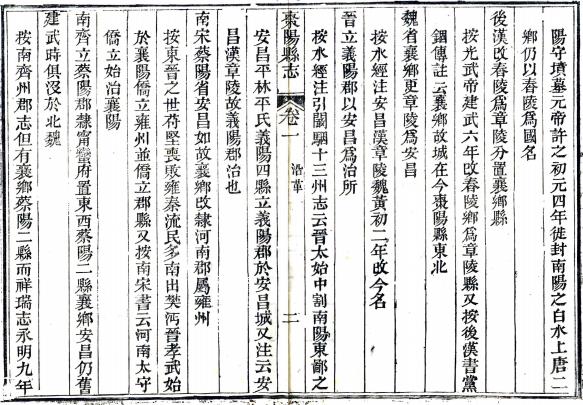 陽守墳墓元帝許之初元四年徙封南陽之白水上唐二
鄉仍以舂陵為國名
後漢改舂陵為章陵分置襄鄉縣
按光武帝建武六年改舂陵鄉為章陵縣又按後漢書黨
錮傳註云襄鄉故城在今棗陽縣東北
魏省襄鄉更章陵為安昌
按水經注安昌漢章陵魏黃初二年改今名
晉立義陽郡以安昌為治所
按水經注引闞駰十三州志云晉太始中割南陽東鄙之
棗陽縣志 卷一 沿革 二
安昌平林平氏義陽四縣立義陽郡於安昌城又注云安
昌漢章陵故義陽郡治也
南宋蔡陽省安昌如故襄鄉改隸河南郡屬雍州
按東晉之世苻堅喪敗雍秦流民多南出樊沔晉孝武始
於襄陽僑立雍州並僑立郡縣又按南宋書云河南太守
僑立始治襄陽
南齊立蔡陽郡隸甯蠻府置東西蔡陽二縣襄鄉安昌仍舊
建武時俱沒於北魏
按南齊州郡志但有襄鄉蔡陽二縣而祥瑞志永明九年